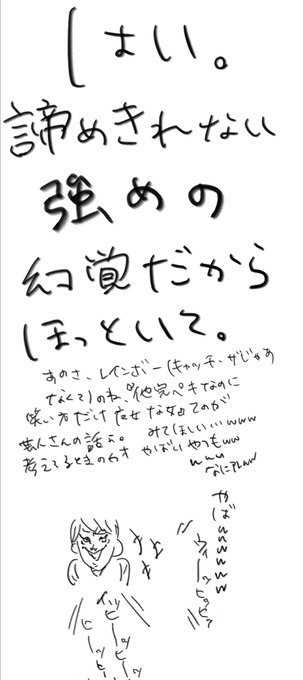 はい。
諦めきれない
強めの
幻覚だから
ほっといて。
あのさ、レインボー(キャッチ・ザじゃあ
なくて)のね、"他完ペキなのに
笑い方だけ
みてほしい…www
芸人さんの話ら。
考えてるときの
やばいやつもww
www
なにアレww
やばwwwwww
ウィーッヒッヒッ
イーッヒッヒー
ヒーヒー